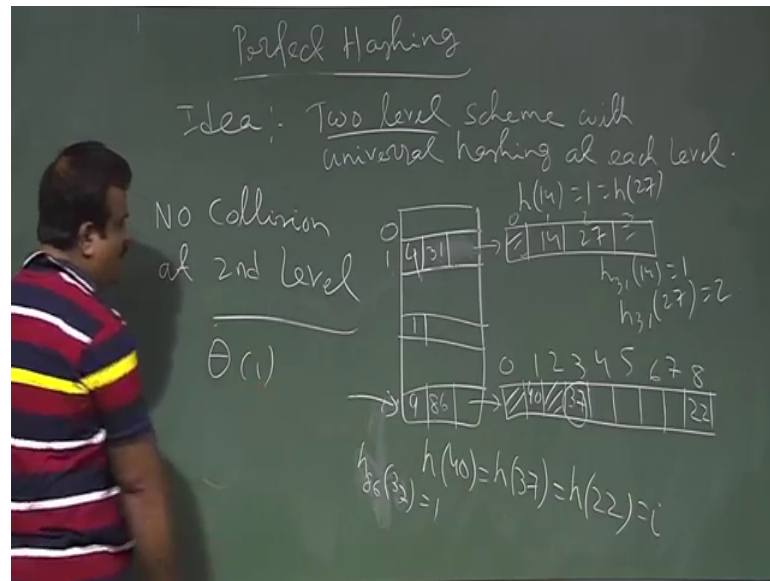 Perfect Hashing
Idea :- Two level scheme with
universal hashing at each level.
NO Collision
at 2nd Level
θ(1)
h(14) = 1 = h(27)
0
1
4 31
14 27
h31(14) = 1
h31(27) = 2
1
0 1 2 3 4 5 6 7 8
i
9 86
40 37 22
h(40) = h(37) = h(22) = i